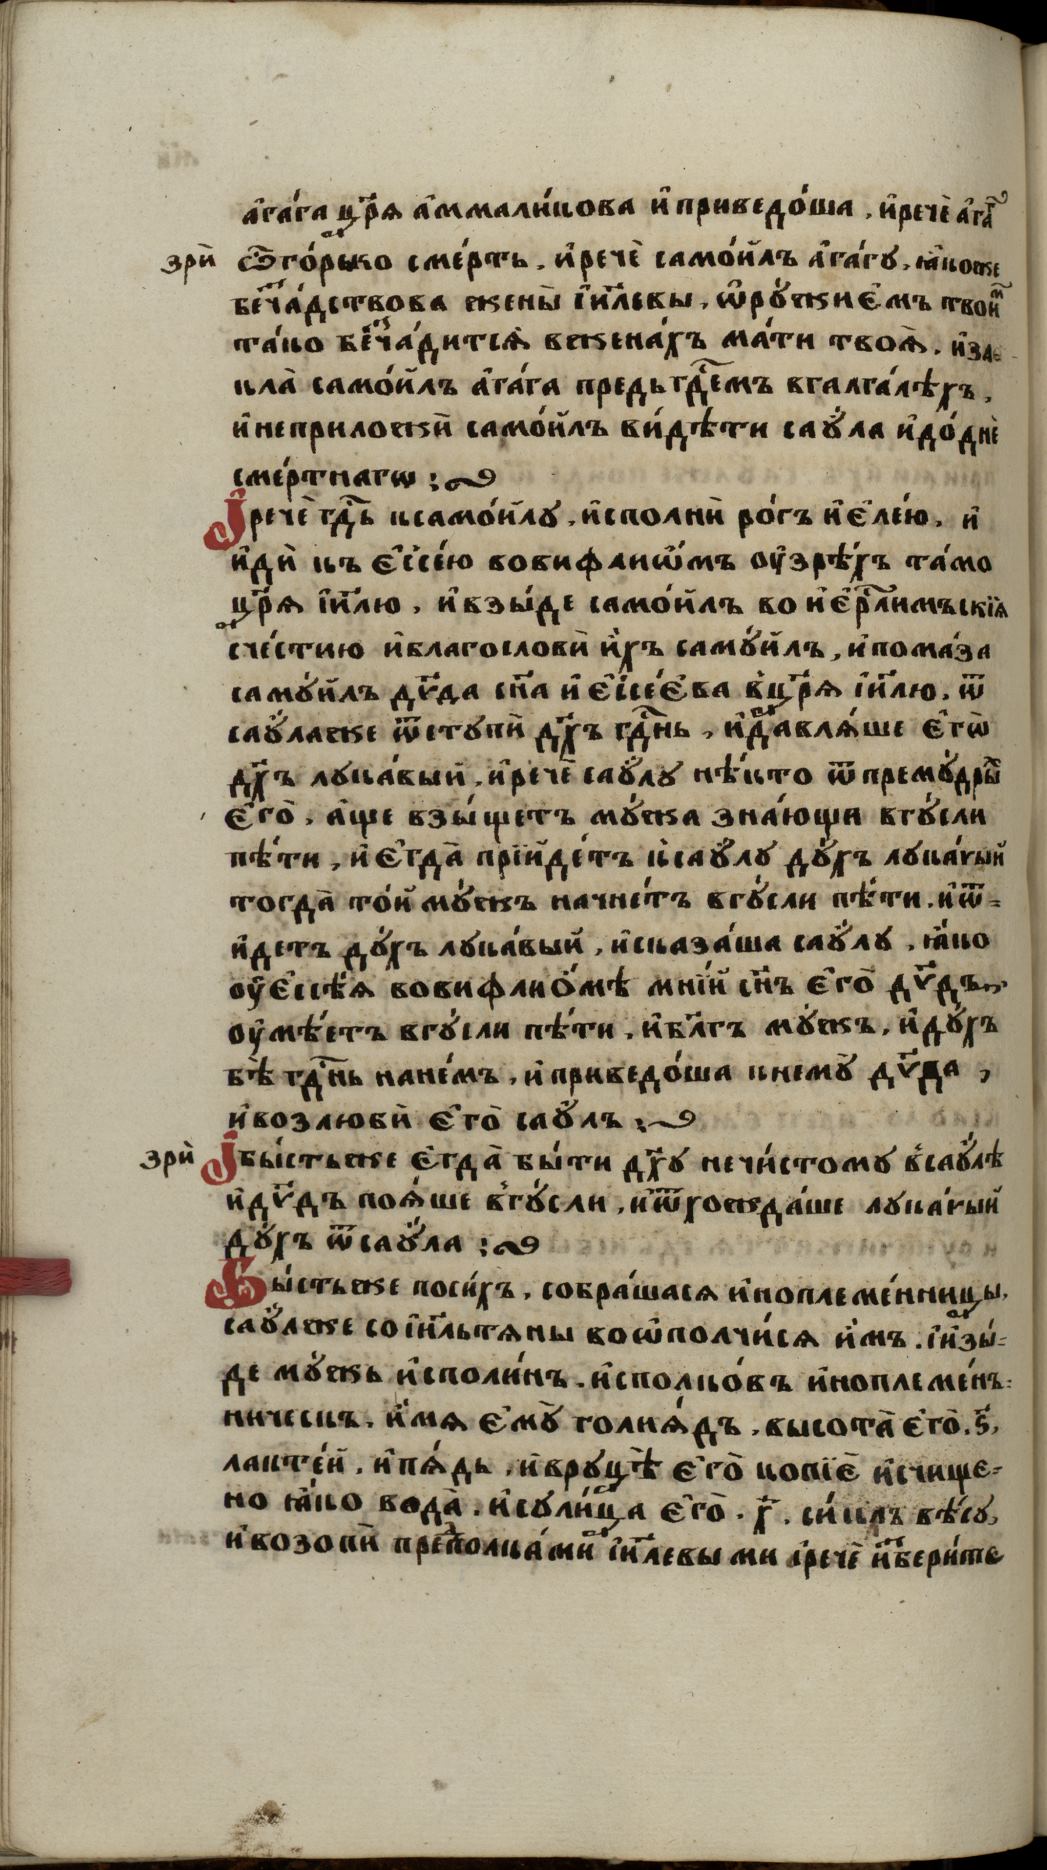 а҆га́га цр҃ѧ а҆ммали́кова и҆ приведо́ша, и҆речѐ а҆га҃
зрѝ
ѿго́рько сме́рть. и҆речѐ само́йлъ а҆га́гу, ꙗ҆коже
беⷱ҇ча́дствова жены̀ і҆и҃левы, ѡ҆ру́жиє҆мъ твоиⷨ
та́ко беⷱ҇ча́дитсѧ̀ вжена́хъ ма́ти твоѧ̀. и҆за
кла̀ само́йлъ а҆га́га предьгдⷭ҇емъ вгалга́лѣхъ,
и҆неприложѝ само́йлъ ви́дѣти саꙋ́ла и҆до́днѐ
сме́ртнагѡ :~
І҆речѐ гдⷭ҇ь ксамо́йлу, и҆сполнѝ ро́гъ и҆є҆ле́ю, и҆
и҆дѝ къ є҆ссе́ю вовифлиѡ́мъ ѹ҆зрѣ́хъ та́мо
цр҃ѧ і҆и҃лю, и҆взы́де само́йлъ во и҆є҆рⷭ҇лимъскїѧ
сче́стию и҆благословѝ и҆́хъ самꙋ́йлъ, и҆пома́за
самꙋ́йлъ дв҃да сн҃а и҆ є҆ссе́є҆ва в҆цр҃ѧ і҆и҃лю. ѿ
саꙋ́лаже ѿступѝ дх҃ъ гдⷭ҇нь, и҆давлѧ́ше є҆гѡ̀
дх҃ъ лука́вый, и҆речѐ саꙋ́лу нѣ́кто ѿпремꙋ́дрыⷯ
є҆го̀, а҆́ще взы́щетъ мꙋ́жа зна́ющи вгꙋ́сли
пѣ́ти, и҆є҆гда̀ прїи́детъ ксаꙋ́лу дꙋ́хъ лука́вый
тогда̀ то́й мꙋ́жъ начне́тъ вгꙋ́сли пѣ́ти. и҆ѿ=
и҆детъ дꙋ́хъ лука́вый, и҆сказа́ша саꙋ́лу, ꙗ҆́ко
ѹ҆є҆ссѣ́ѧ вовифлио́мѣ мні́й сн҃ъ є҆го̀ дв҃дъ,
ѹ҆мѣ́етъ вгꙋ́сли пѣ́ти, и҆бл҃гъ мꙋ́жъ, и҆дꙋ́хъ
бѣ̀ гдⷭ҇нь нане́мъ, и҆приведо́ша кнемꙋ̀ дв҃да,
и҆возлюбѝ є҆го̀ саꙋ́лъ :~
зрѝ
І҆бы́стьже є҆гда̀ бы́ти дх҃у нечи́стому в҆саꙋ́лѣ
и҆дв҃дъ поѧ́ше в҆гꙋ́сли, и҆ѿхожда́ше лука́вый
дꙋ́хъ ѿсаꙋ́ла :~
Бы́стьже поси́хъ, собра́шасѧ и҆ноплеме́нницы,
саꙋ́лже соі҆и҃льтѧны воѡполчи́сѧ и҆́мъ. і҆и҆зы́=
де мꙋ́жь и҆споли́нъ. и҆сполко́въ и҆ноплеме́нъ=
ническъ. и҆́мѧ є҆мꙋ̀ голиѧ́дъ, высота̀ є҆го̀. ѕ҃,
лакте́й, и҆пѧ́дь, и҆вруцѣ̀ є҆го̀ копїє̀ и҆счище=
но ꙗ҆́ко вода̀. и҆сули́ца є҆го̀. х҃. си́клъ вѣ́су,
и҆возопѝ преⷣполка́ми і҆и҃левы ми і҆речѐ и҆збери́те